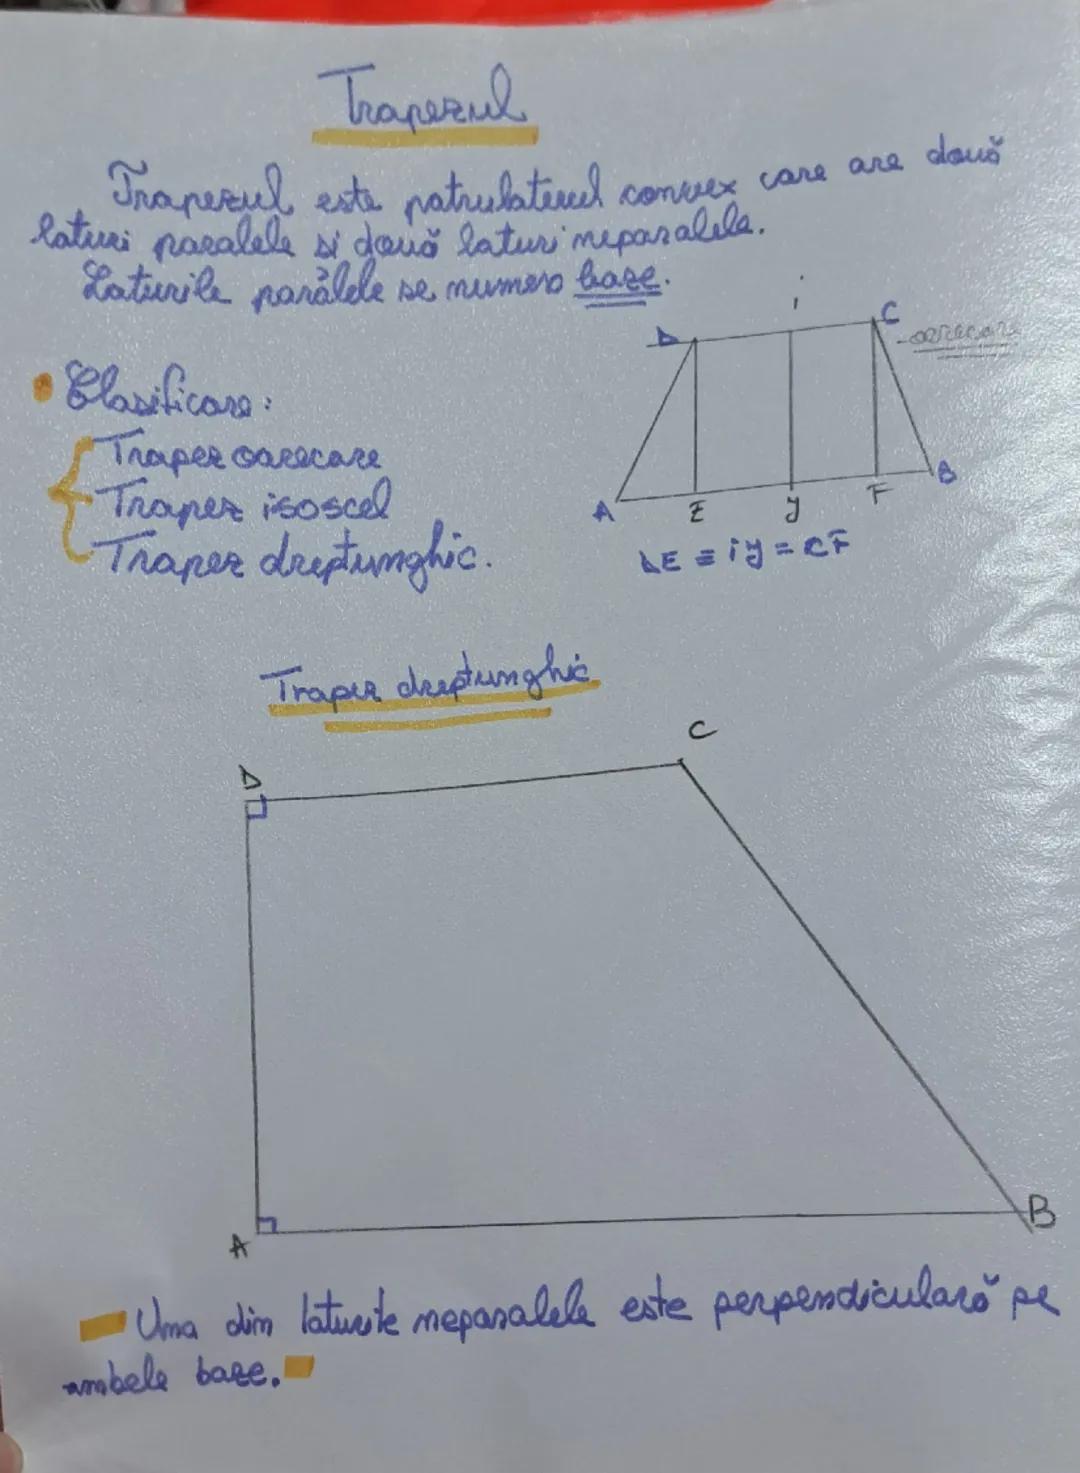 Trapezul
Trapezul este patrulaterul convex care are două
laturi paralele si două laturi neparalele.
Laturile paralele se numesc baze.
D
i
C
-oarecare
• Clasificare:
Trapez oarecare
Trapez isoscel
Trapez dreptunghic.
A
E
y
F
B
DE ≡ iy = CF
Trapez dreptunghic
D
C
A
B
Una din laturile neparalele este perpendiculară pe
ambele baze.